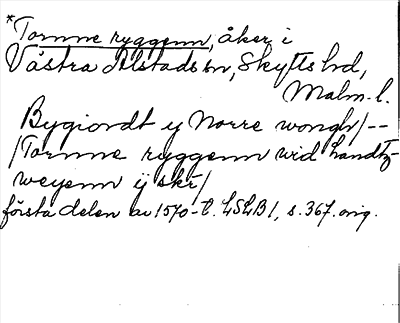 *Tornne ryggenn, åker i
Västra Alstads sn, Skytts hd,
Malm. l.
Bygiordt y Norre wongh/--
/Tornne ryggenn wid handtz-
weyenn ij skr/
första delen av 1570-t. LSLB 1, s. 367. orig.